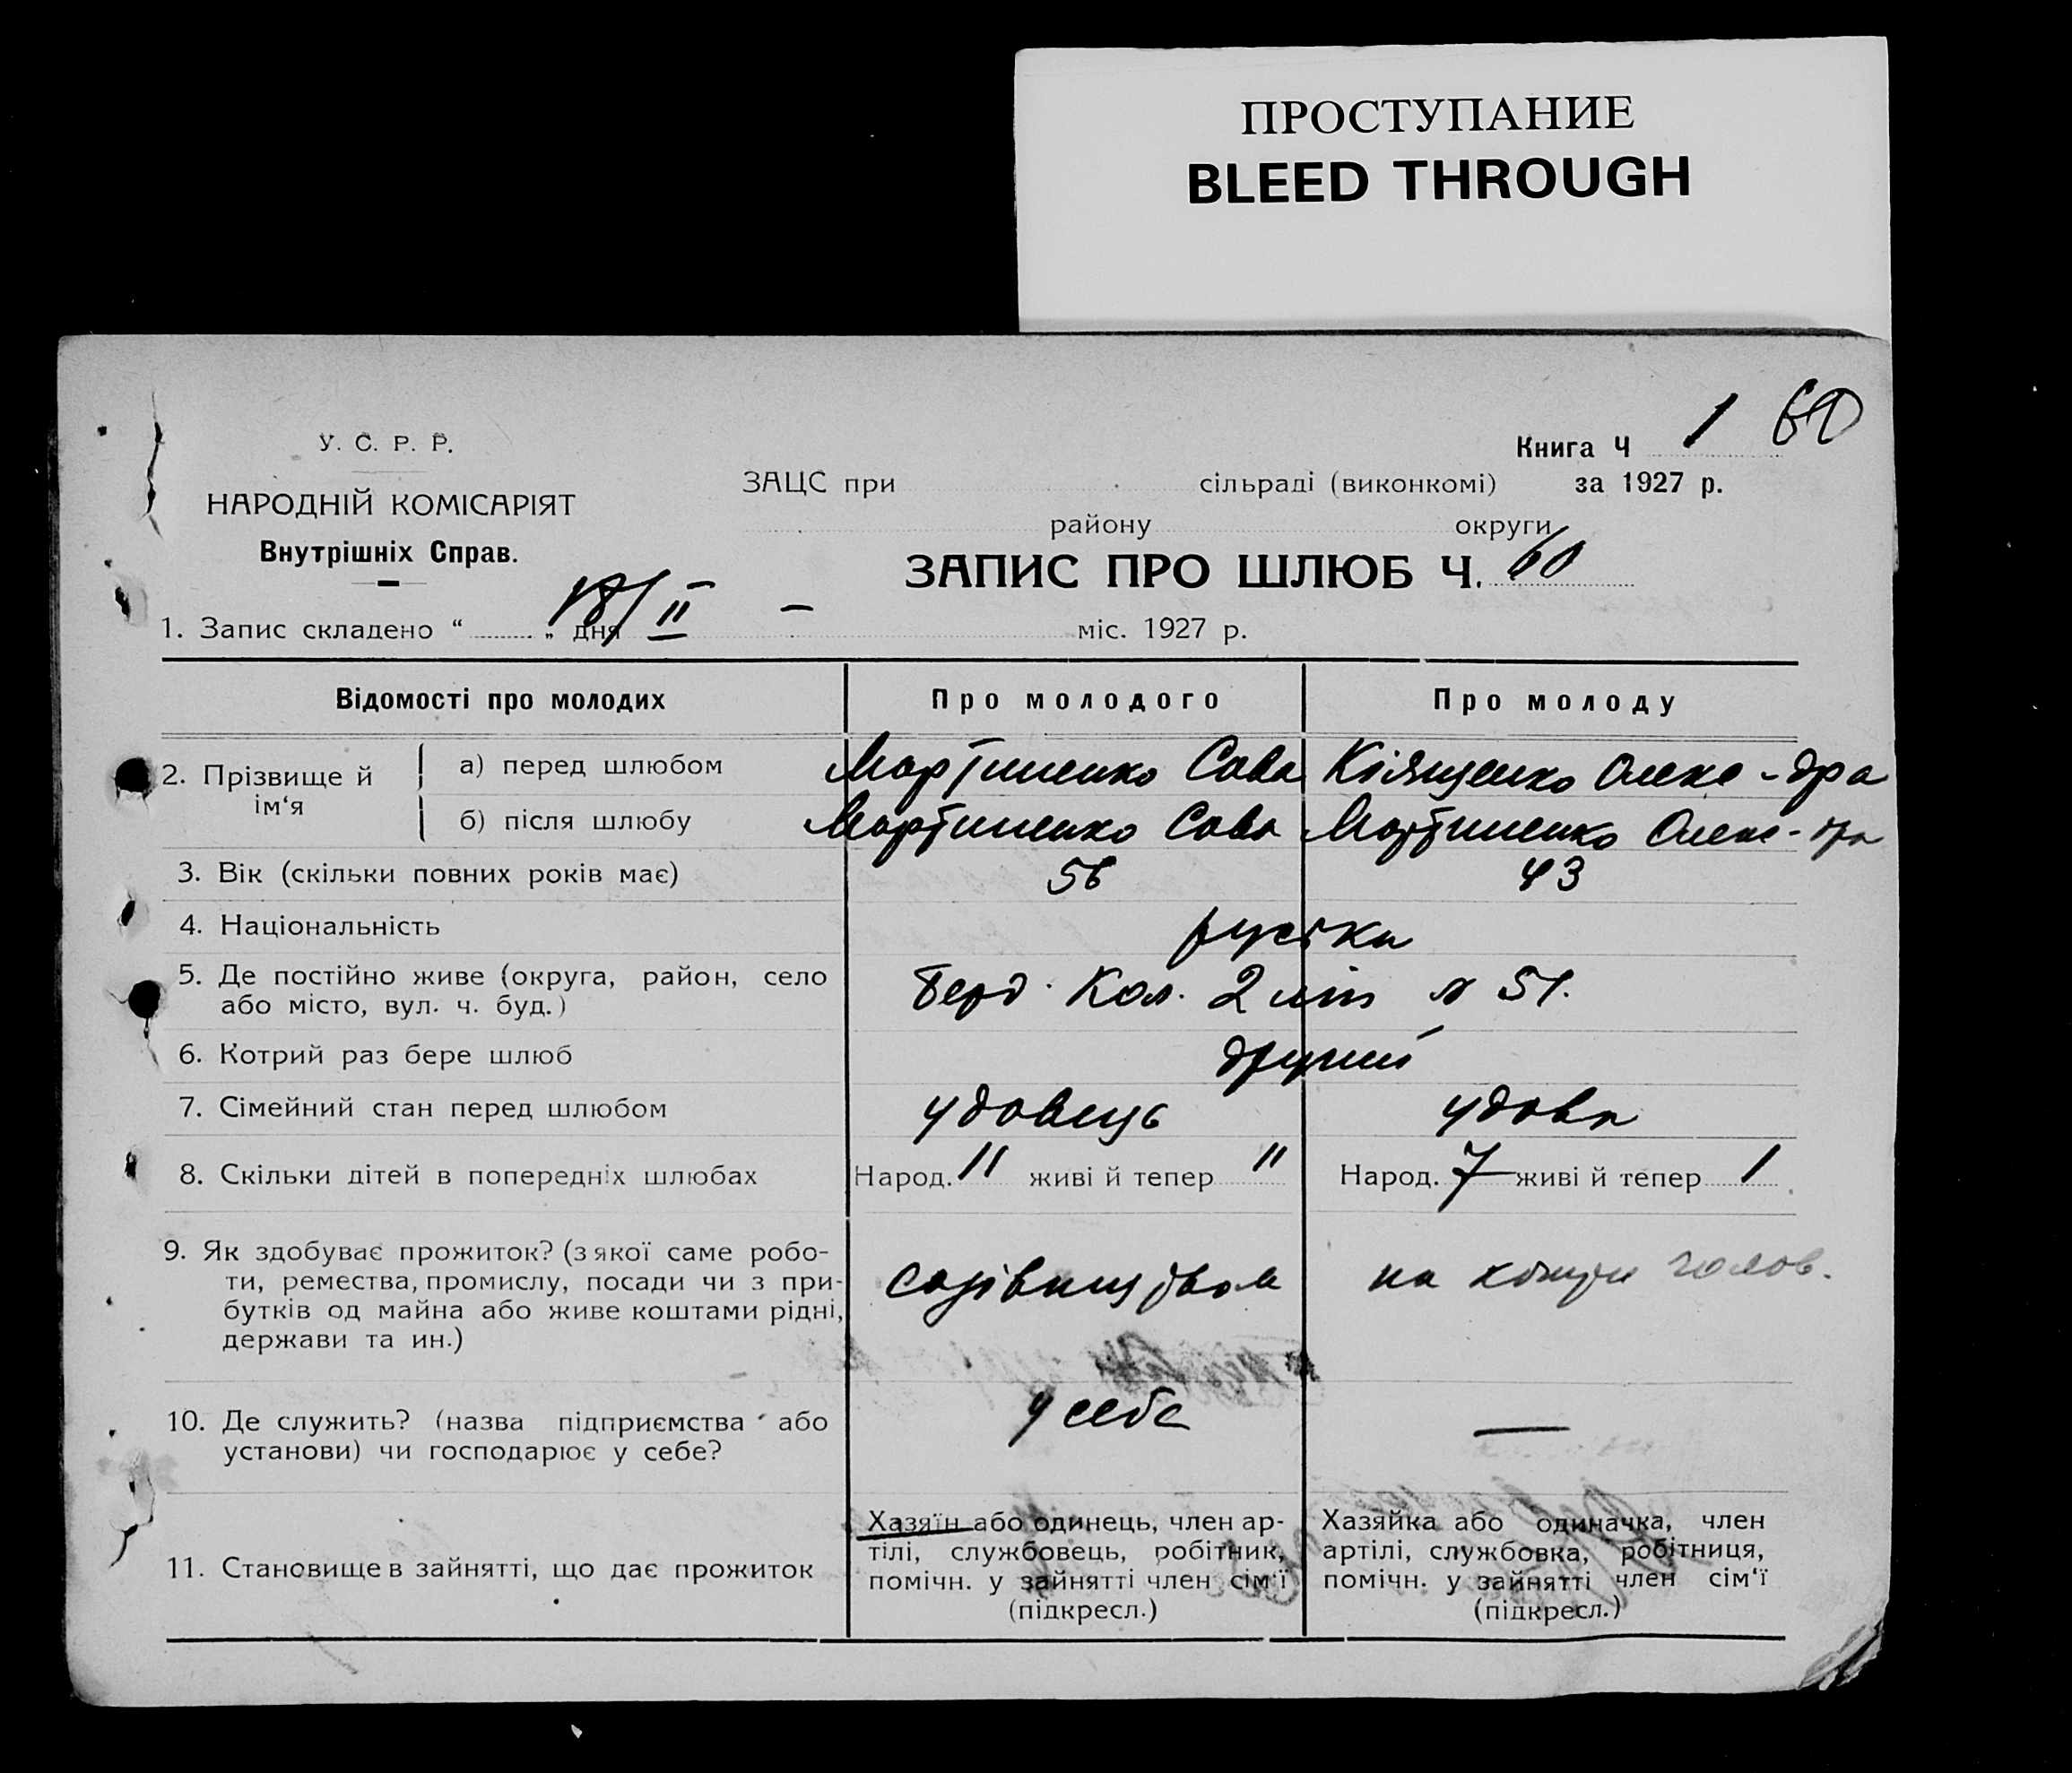 ПРОСТУПАНИЕ
BLEED THROUGH
1 60
Книга Ч
У. С. Р. Р.
ЗАЦС при сільраді (виконкомі) за 1927 р.
НАРОДНІЙ КОМІСАРІЯТ
району округи
Внутрішніх Справ.
ЗАПИС ПРО ШЛЮБ Ч. 60
1. Запис складено “ „ дня 18/II – міс. 1927 р.
Відомості про молодих Про молодого Про молоду
2. Прізвище й ім‘я
а) перед шлюбом Мартиненко Сава Кіященко Олекс-дра
б) після шлюбу Мартиненко Сава Мартиненко Олекс-дра
3. Вік (скільки повних років має) 56 43
4. Національність
5. Де постійно живе (округа, район, село
або місто, вул. ч. буд.)
Берд. Кол. 2 № 51.
6. Котрий раз бере шлюб другий
7. Сімейний стан перед шлюбом удовець удова
8. Скільки дітей в попередніх шлюбах Народ. 11 живі й тепер 11 Народ. 7 живі й тепер 1
9. Як здобуває прожиток? (з якої саме робо-
ти, ремества, промислу, посади чи з при-
бутків од майна або живе коштами рідні,
держави та ин.)
садівництвом на кошти голов.
10. Де служить? (назва підприємства або
установи) чи господарює у себе?
у себе —
11. Становище в зайнятті, що дає прожиток
Хазяїн або одинець, член ар-
тілі, службовець, робітник,
помічн. у зайнятті член сім‘ї
(підкресл.)
Хазяйка або одиначка, член
артілі, службовка, робітниця,
помічн. у зайнятті член сім‘ї
(підкресл.)